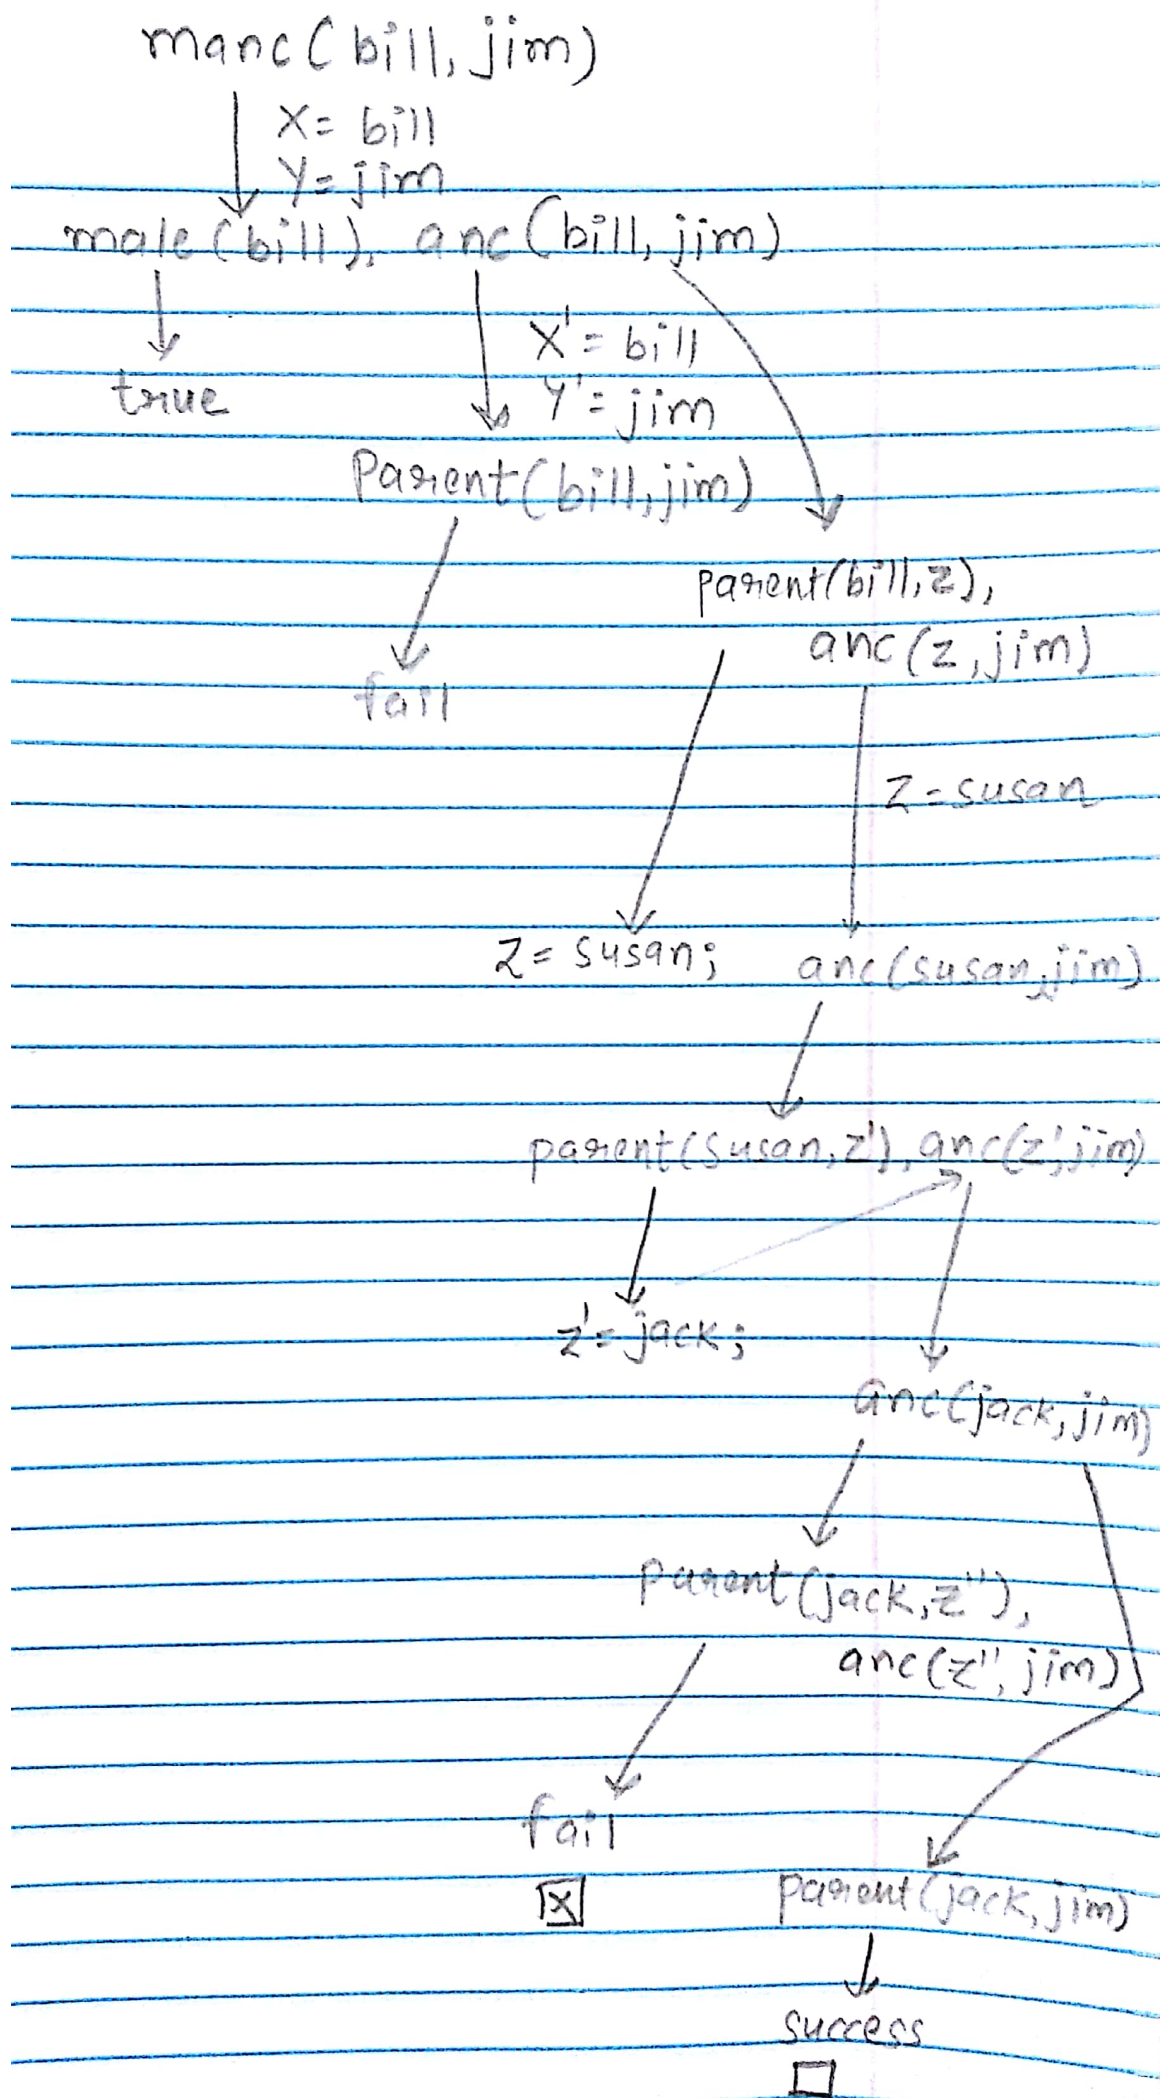 manc(bill, jim)
X= bill
Y= jim
male(bill), anc(bill, jim)
true
X'= bill
Y'= jim
Parent(bill, jim)
fail
parent(bill, z),
anc(z, jim)
Z=susan
Z= susan; anc(susan, jim)
parent(susan, z'), anc(z', jim)
z'= jack;
anc(jack, jim)
parent(jack, z''),
anc(z'', jim)
fail
X
parent(jack, jim)
success